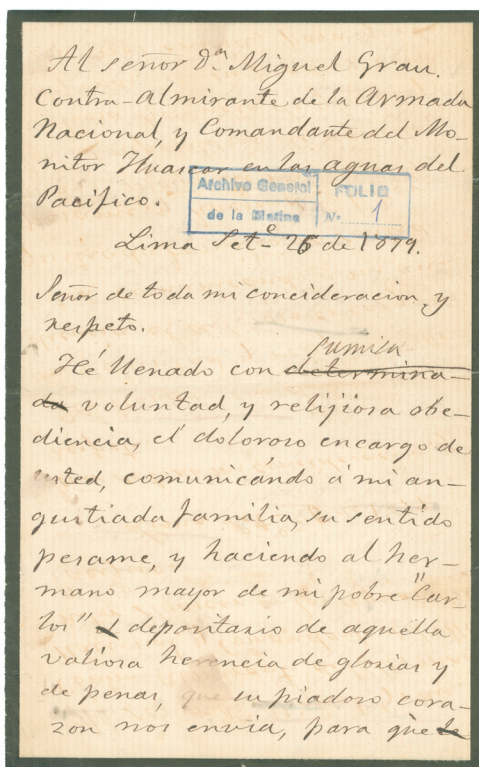 Al señor Dn. Miguel Grau.
Contra-Almirante de la Armada
Nacional, y Comandante del Mo-
nitor Huascar en las aguas del
Pacífico.
Archivo General
de la Marina
FOLIO
N° 1
Lima Set-e 26 de 1879.
Señor de toda mi concideracion, y
respeto.
sumisa
Hé llenado con determina-
da voluntad, y relijiosa obe-
diencia, el doloroso encargo de
usted, comunicándo á mi an-
gustiada familia, su sentido
pesame, y haciendo al her-
mano mayor de mi pobre "Car-
los" depositario de aquella
valiosa herencia de glorias y
de penas, que su piadoso cora-
zon nos envia, para que le